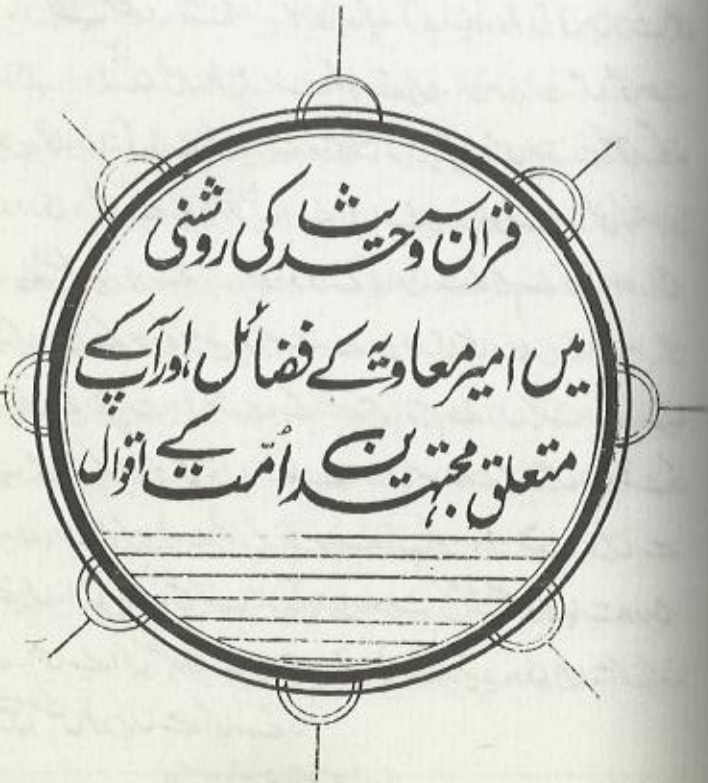 قرآن و حدیث کی روشنی
میں امیر معاویہ کے فضائل اور آپ کے
متعلق مجتہدین اُمّت کے اقوال